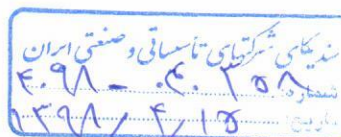 سندیکای شرکتهای تاسیساتی و صنعتی ایران
شماره: ۴۰۹۸ - ۰۴۰۳۵۸
تاریخ: ۱۳۹۸/۴/۱۵